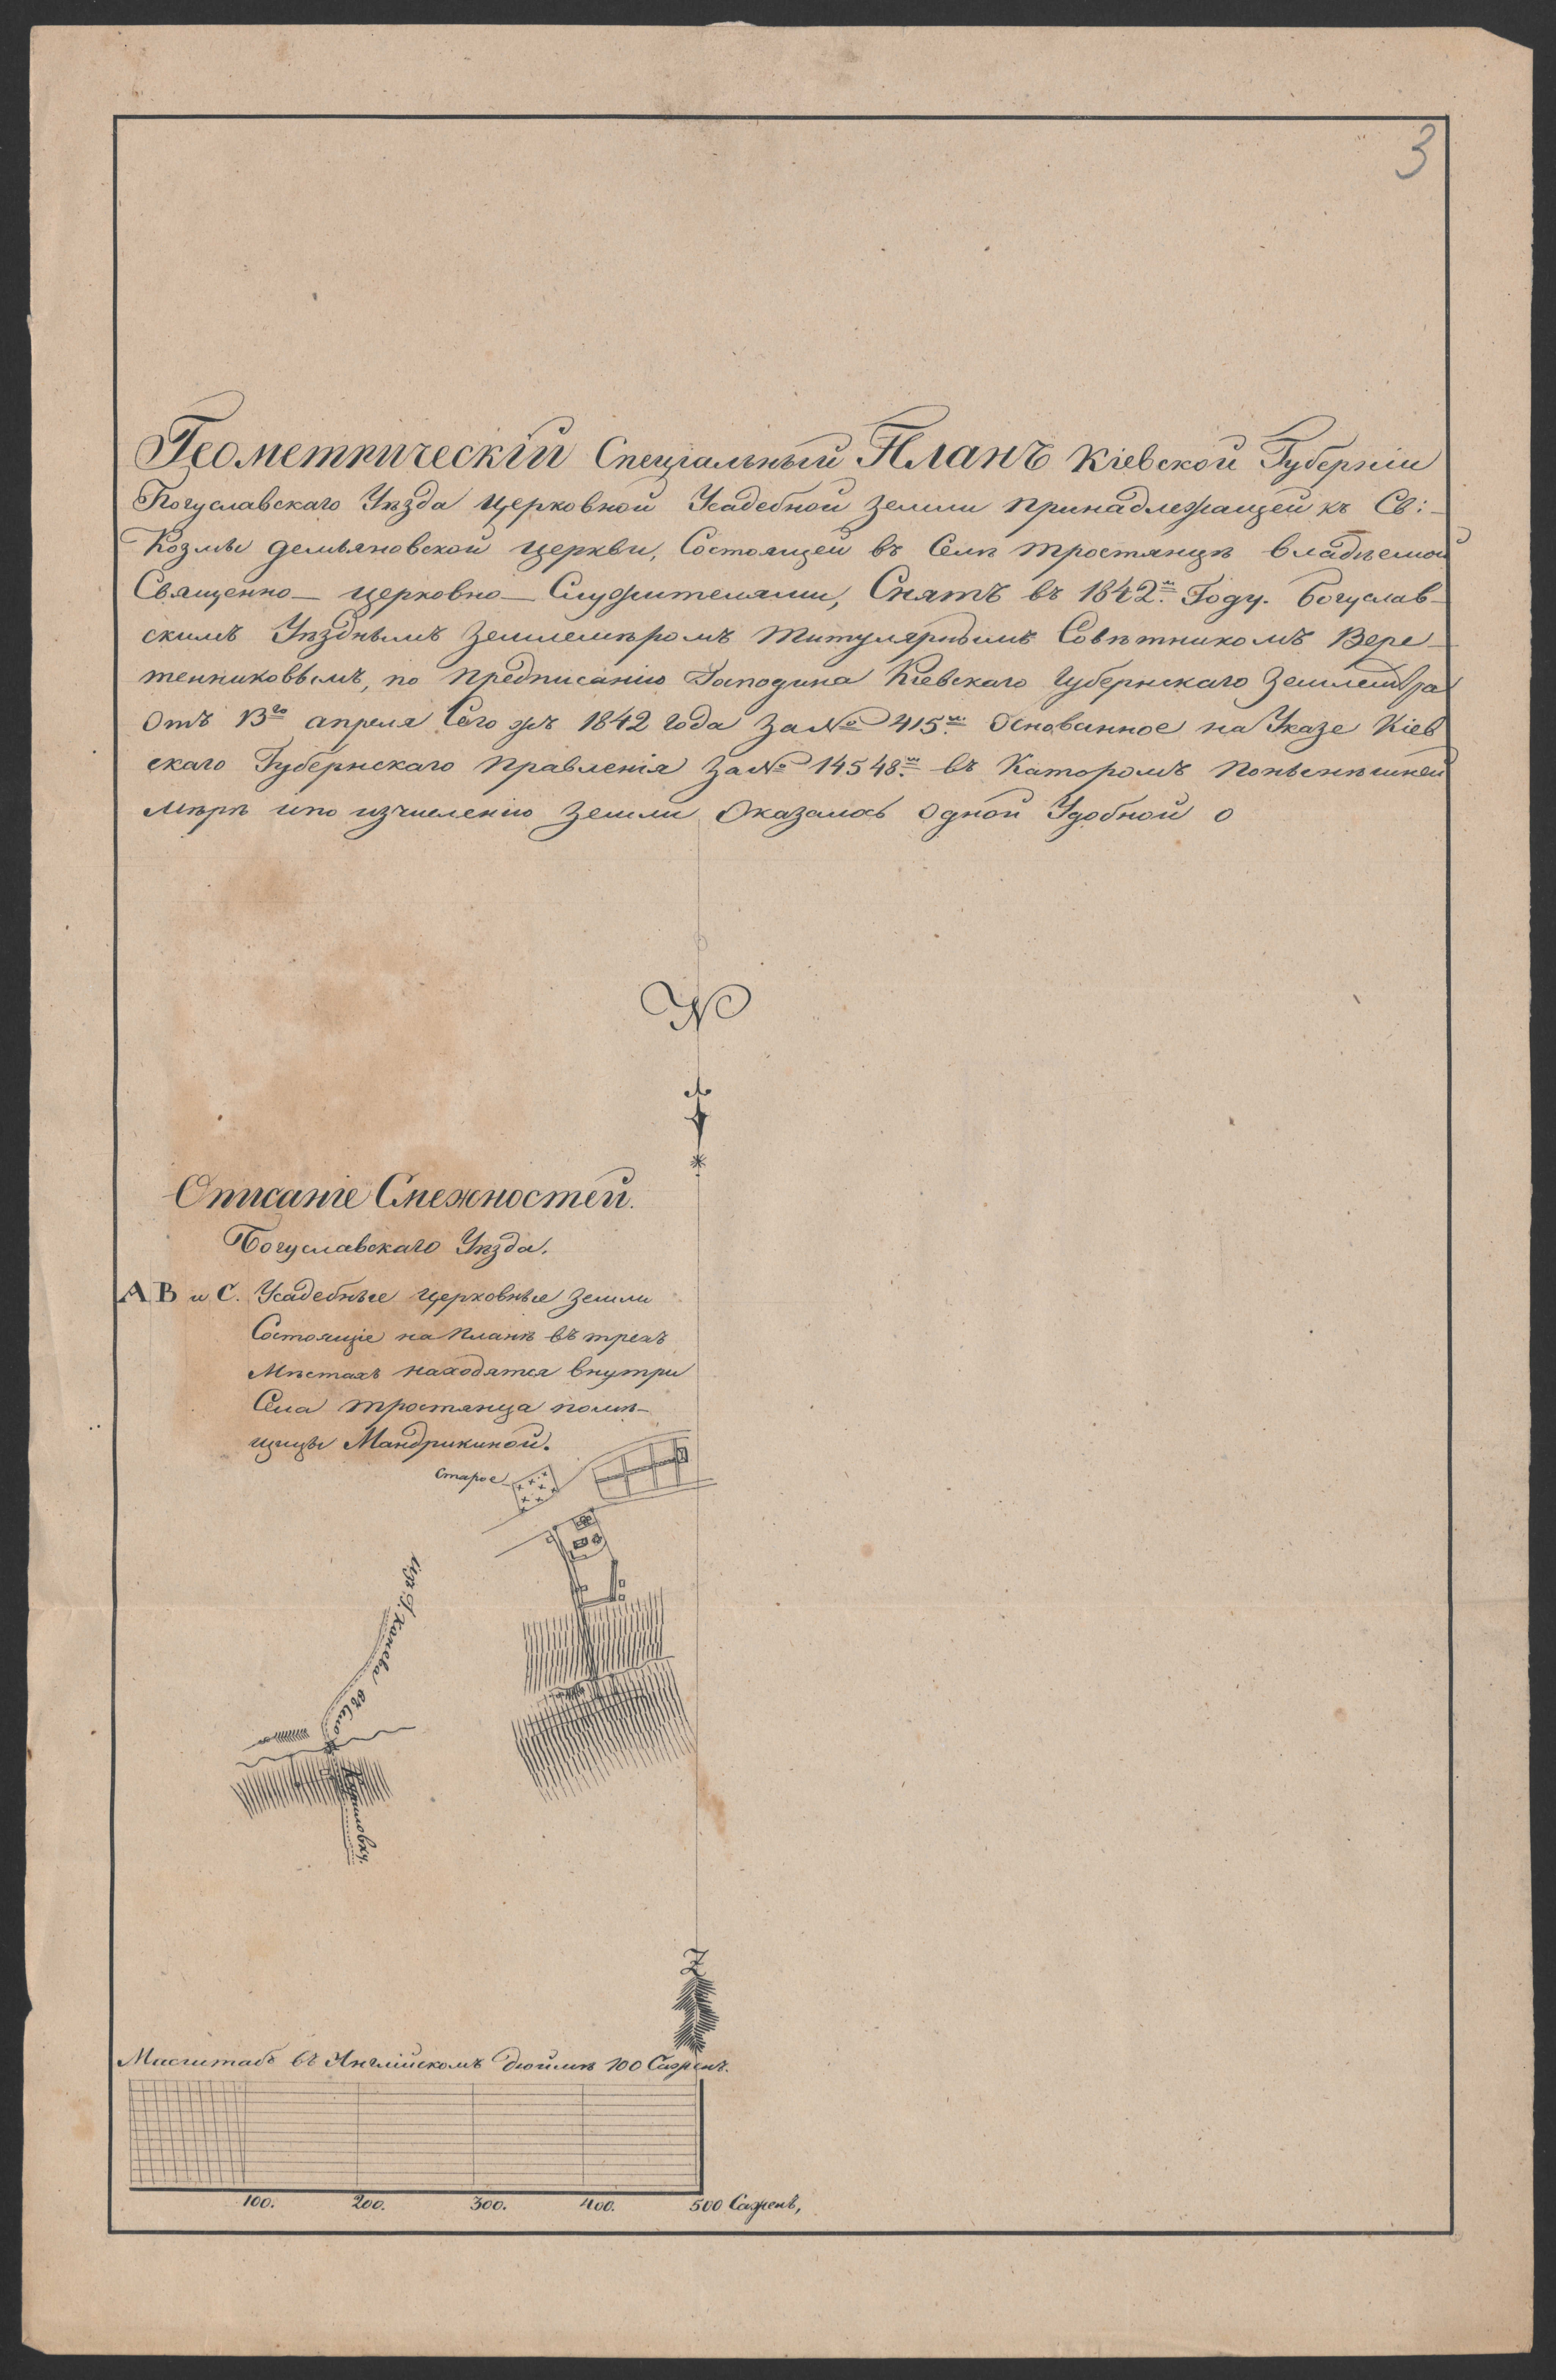 3
Геометрический Специальный Планъ Кіевской Губерніи
Богуславскаго Уѣзда церковной Усадебной земли принадлежащей къ Св:
Козмы демьяновской церкви, Состоящей въ Селѣ тростянцѣ владѣемой
Священно- церковно- Служителями, Снятъ въ 1842м. Году. Богуслав-
скимъ Уѣзднымъ землемѣромъ титулярнымъ Совѣтникомъ Вере-
тенниковымъ, по предписанію Господина Кіевскаго губернскаго землемѣра
отъ 13го апреля Сего жъ 1842 года за № 415м. основанное на Указе Кіев
скаго Губернскаго правленія за № 14548м. въ Каторомъ
Мѣрѣ и по изчисленію земли Оказалось одной Удобной 0
N
Описаніе Смежностей.
Богуславскаго Уѣзда.
А В и С. Усадебные церковные земли
Состоящіе на планѣ въ трехъ
Мѣстахъ находятся внутри
Села тростянца помѣ-
щицы Мандрикиной.
Старое
изъ Г. Канева въ село
Z
Масштабъ въ Англійскомъ дюймѣ 100 Саженъ.
100. 200. 300. 400. 500 Саженъ,